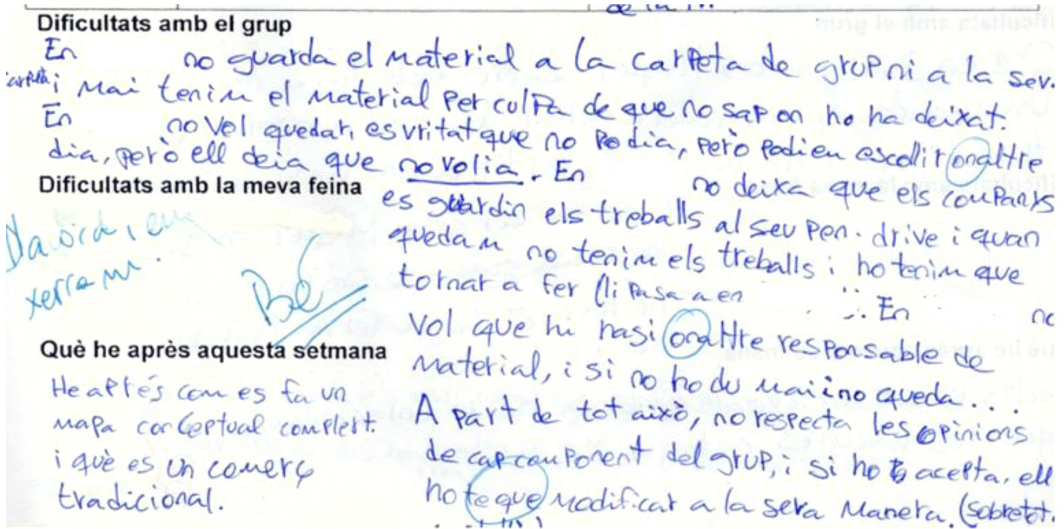 Dificultats amb el grup
En no guarda el material a la carpeta de grup ni a la sev.
carpeta i mai tenim el material per culpa de que no sap on ho ha deixat.
En no vol quedar, es vritat que no podia, però podien escollir onaltre
dia, però ell deia que no volia. En no deixa que els companys
Dificultats amb la meva feina
es guardin els treballs al seu pen. drive i quan
quedam no tenim els treballs i ho tenim que
tornar a fer (li pasa a en
En no
vol que hi hasi onaltre responsable de
material, i si no ho du mai i no queda...
A part de tot això, no respecta les opinions
de cap component del grup, i si ho acepta, ell
ho te que modificar a la seva manera. (sobretot.
xerram.
Bé
Què he après aquesta setmana
He aprés com es fa un
mapa conceptual complert.
i què es un comerç
tradicional.